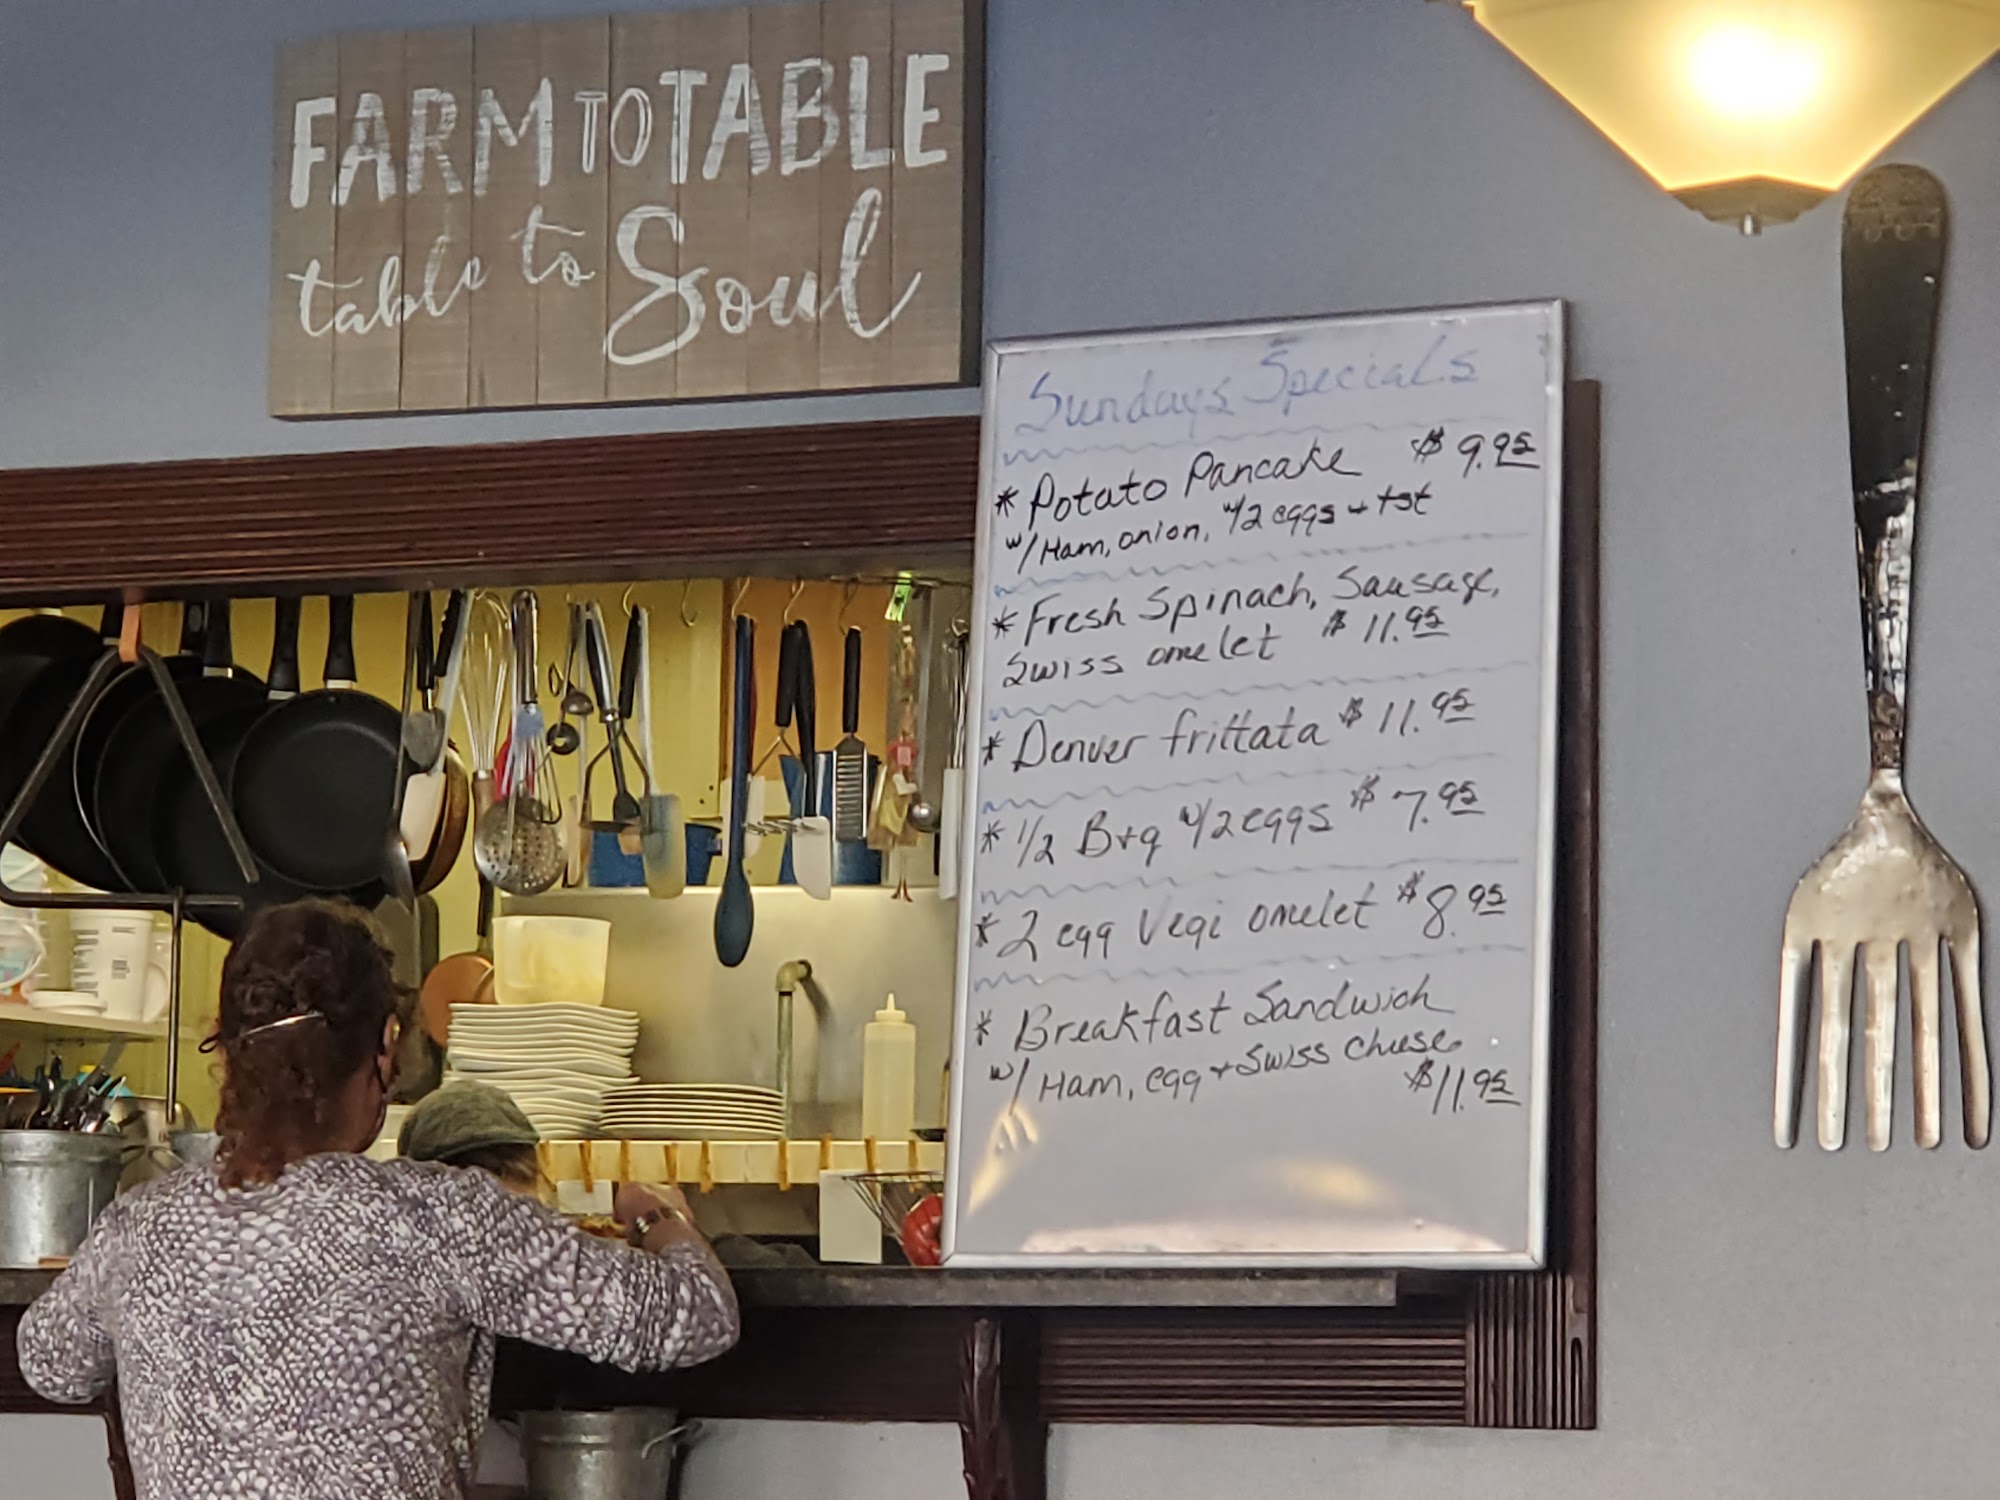 FARM TO TABLE
table to Soul
Sundays Specials
* Potato Pancake $9.95
w/ Ham, onion, w/2 eggs + tst
* Fresh Spinach, Sausage,
Swiss omelet $11.95
* Denver frittata $11.95
* 1/2 B+g w/2 eggs $7.95
* 2 egg Vegi omelet $8.95
* Breakfast Sandwich
w/ Ham, egg + Swiss cheese
$11.95